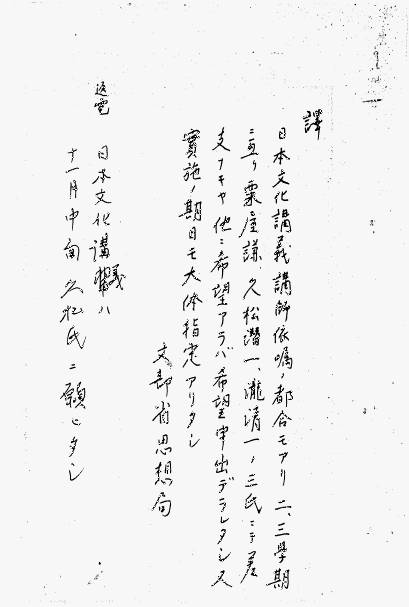 譯
日本文化講義講師依嘱ノ都合モアリ二、三學期
ニ亘リ粟屋謙、久松潜一、瀧精一ノ三氏ニテ差
支ナキヤ他ニ希望アラバ希望申出デラレタシ又
實施ノ期日モ大体指定アリタシ
文部省思想局
返電
日本文化講義ハ
十一月中旬久松氏ニ願ヒタシ